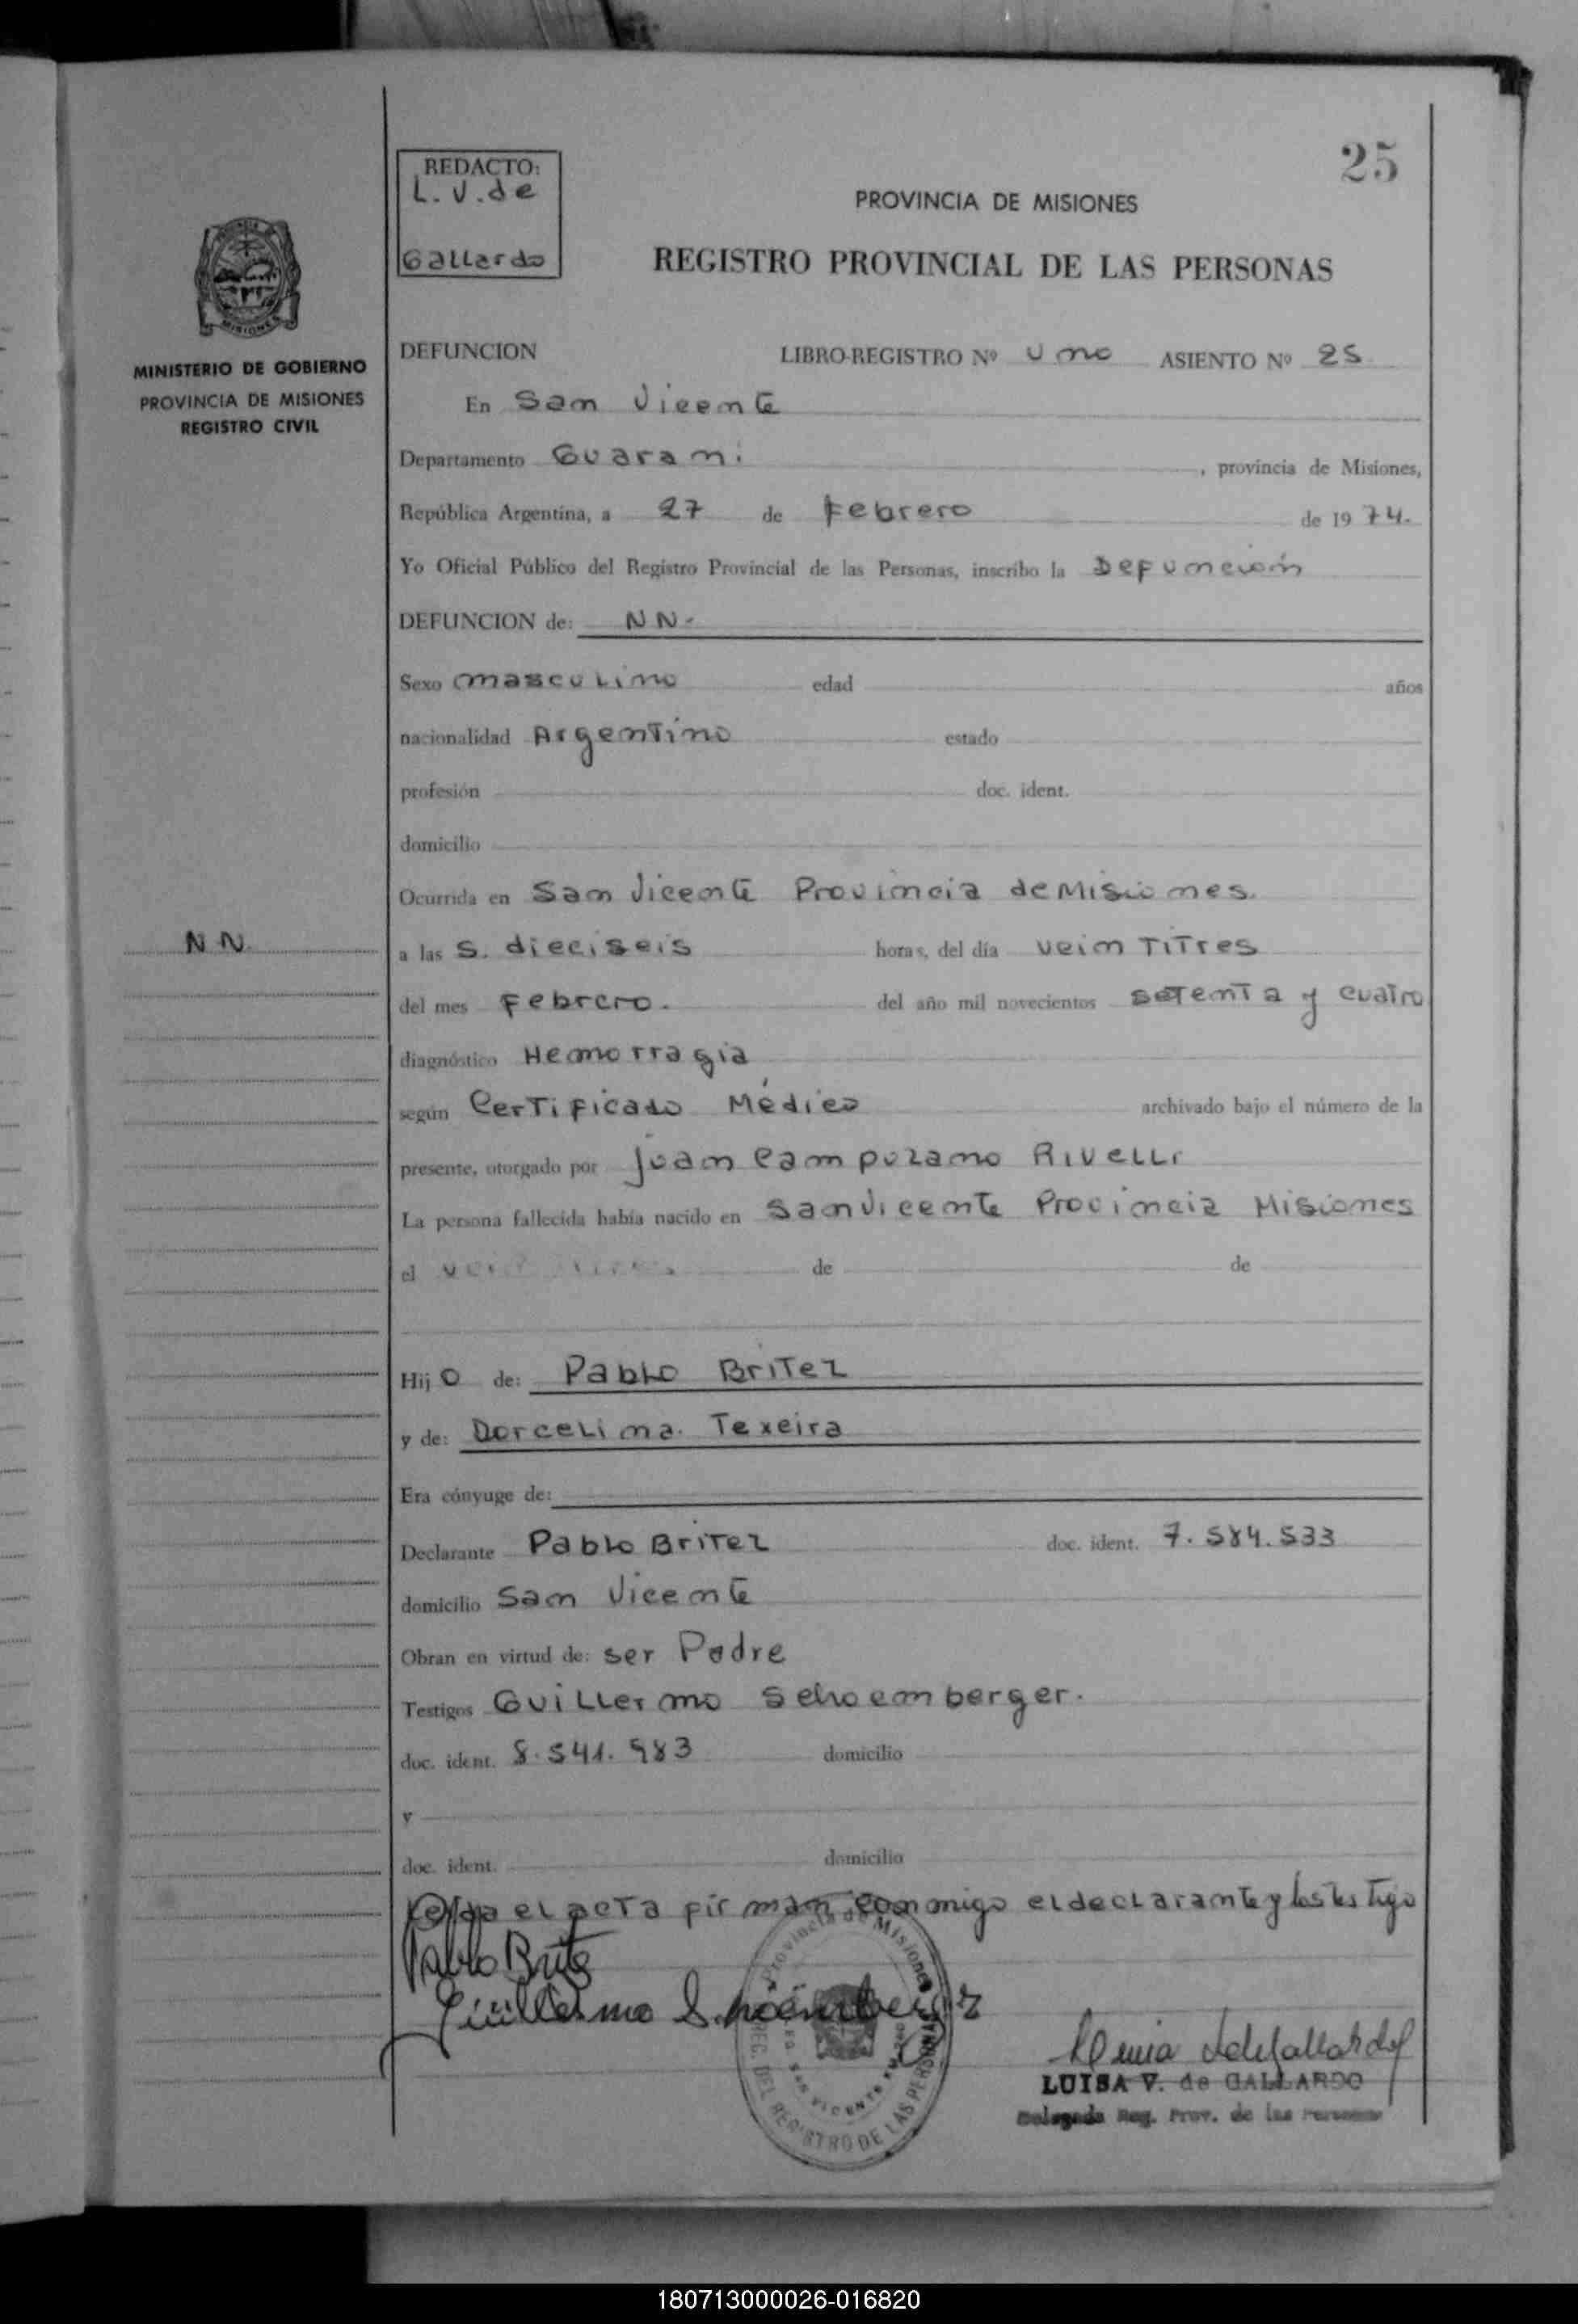 25
REDACTO:
L. V. de
Gallardo
PROVINCIA DE MISIONES
REGISTRO PROVINCIAL DE LAS PERSONAS
MISIONES
MINISTERIO DE GOBIERNO
PROVINCIA DE MISIONES
REGISTRO CIVIL
DEFUNCION LIBRO-REGISTRO Nº uno ASIENTO Nº 25
En San Vicente
Departamento Guarani , provincia de Misiones,
República Argentina, a 27 de Febrero de 1974.
Yo Oficial Público del Registro Provincial de las Personas, inscribo la Defunción
DEFUNCION de: NN.
Sexo masculino edad años
nacionalidad Argentino estado
profesión doc. ident.
domicilio
Ocurrida en San Vicente Provincia de Misiones.
NN.
a las S. dieciseis horas, del día veintitres
del mes Febrero. del año mil novecientos setenta y cuatro
diagnóstico Hemorragia
según Certificado Médico archivado bajo el número de la
presente, otorgado por Juan Campuzano Rivelli
La persona fallecida había nacido en San Vicente Provincia Misiones
el de de
Hijo de: Pablo Britez
y de: Dorcelina. Texeira
Era cónyuge de:
Declarante Pablo Britez doc. ident. 7.584.533
domicilio San Vicente
Obran en virtud de: ser Padre
Testigos Guillermo Schoenberger.
doc. ident. 8.541.983 domicilio
y
doc. ident. domicilio
el acta firman conmigo el declarante y los testigo
Pablo Brite
Guillermo
Provincia de Misiones
REG. DEL REGISTRO DE LAS PERSONAS
SAN VICENTE
LUISA V. de GALLARDO
Delegada Reg. Prov. de las Personas
180713000026-016820